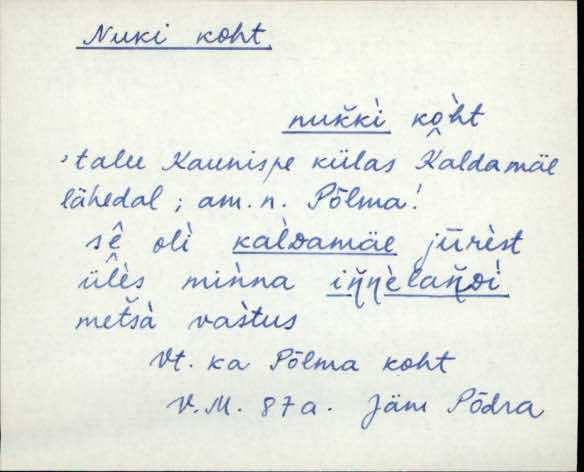 Nuki koht.
nuk̆kì kòht
'talu Kaunispe külas Kaldamäe
lähedal; am. n. Põlma!
sê olì kaldamäe jūrèst
ûlès minna iŋŋèlan̆dì
metšà vastus
Vt. ka Põlma koht
V.M. 87a. Jäm Põdra